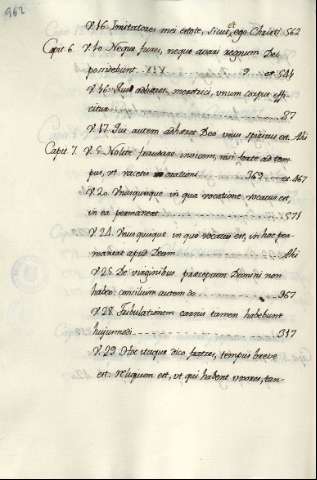 962
V. 16. Imitatores mei estote, sicut et ego Christi. 562
Capit. 6. V. 10. Neque fures, neque avari regnum Dei
possidebunt. XIX 9. et 524
V. 16. Qui adhæret meretrici, unum corpus effi-
citur 87
V. 17. Qui autem adhæret Deo unus spiritus est. Ibi
Capit. 7. V. 5. Nolite fraudare invicem, nisi forte ad tem-
pus, ut vacetis orationi 369 et 467
V. 20. Unusquisque in qua vocatione vocatus est,
in ea permaneat 571
V. 24. Unusquisque in quo vocatus est, in hoc per-
maneat apud Deum Ibi
V. 25. De virginibus præceptum Domini non
habeo: consilium autem do 367
V. 28. Tribulationem carnis tamen habebunt
hujusmodi 317
V. 29. Hoc itaque dico fratres, tempus breve
est. Reliquum est, ut qui habent uxores, tan-